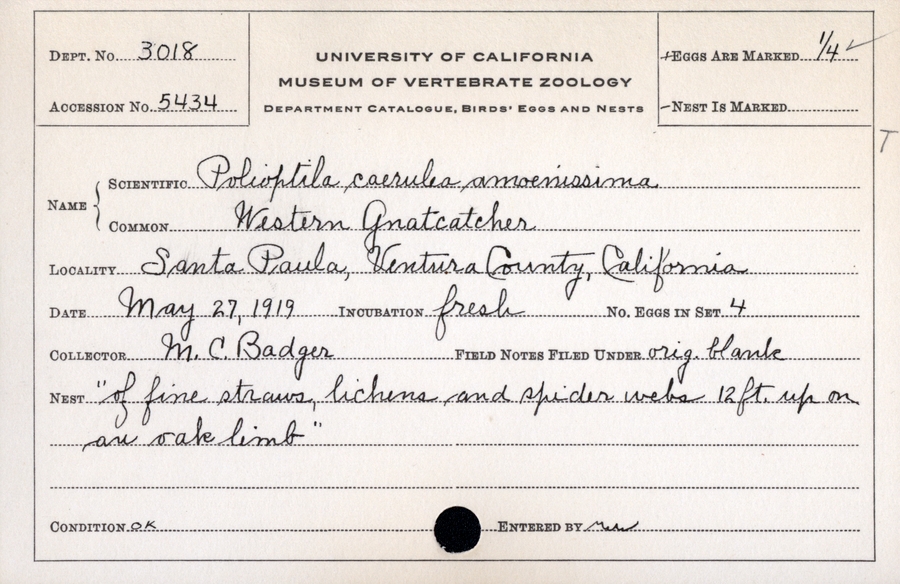 DEPT. NO. 3018
ACCESSION NO. 5434
UNIVERSITY OF CALIFORNIA
MUSEUM OF VERTEBRATE ZOOLOGY
DEPARTMENT CATALOGUE, BIRDS' EGGS AND NESTS
EGGS ARE MARKED 1/4 ✓
NEST IS MARKED
T
NAME { SCIENTIFIC Polioptila caerulea amoenissima
COMMON Western Gnatcatcher
LOCALITY Santa Paula, Ventura County, California
DATE May 27, 1919 INCUBATION fresh NO. EGGS IN SET 4
COLLECTOR M. C. Badger FIELD NOTES FILED UNDER orig. blank
NEST "of fine straws, lichens and spider webs 12 ft. up on
an oak limb"
CONDITION OK ENTERED BY